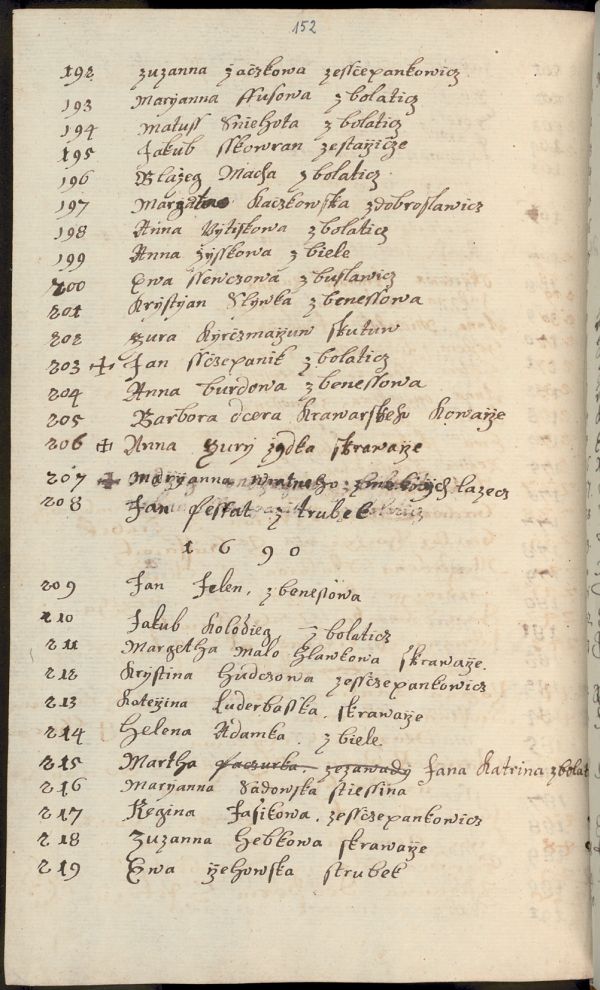 152
192 zuzanna zaczkowa zessczepankowicz
193 Maryanna ssusowa z bolaticz
194 Matuss Sniehota z bolaticz
195 Jakub sskowran zestayicze
196 Blazeg Macha z bolaticz
197 Kaczkowska zdobroslawicz
198 Anna Wytiskowa z bolaticz
199 Anna zysskowa z biele
200 Ewa ssewczowa z buslawicz
201 Krystyan Slywka z benessowa
202 zura
203 + Jan ssczepanik z bolaticz
204 Anna burdowa z benessowa
205 Barbora dcera Krawarskeho Kowarze
206 + Anna zury zydka skrawarze
207 + Maryanna lazecz
208 Jan pessat z trubek
1690
209 Jan Jelen, z benessowa
210 Jakub Kolodieg, z bolaticz
211 Margetha Malo hlawkowa skrawarze.
212 Krystina hudczowa zessczepankowicz
213 Luderbasska. skrawarze
214 Helena Adamka. z biele.
215 Martha paczurka. zezawady Jana Katrina z bolat
216 Maryanna Sadowska stiessina
217 Regina Jasikowa. zessczepankowicz
218 Zuzanna Hebkowa skrawarze
219 Ewa rzehowska strubek